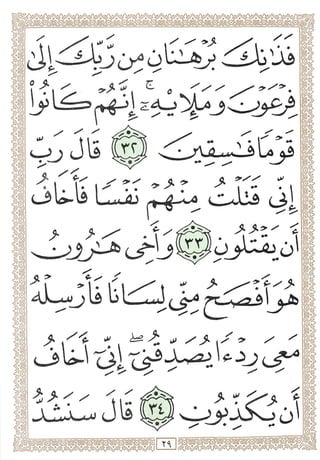 فَذَٰنِكَ بُرْهَٰنَانِ مِن رَّبِّكَ إِلَىٰ
فِرْعَوْنَ وَمَلَإِيْهِۦٓ ۚ إِنَّهُمْ كَانُوا۟
قَوْمًا فَٰسِقِينَ ٣٢ قَالَ رَبِّ
إِنِّى قَتَلْتُ مِنْهُمْ نَفْسًا فَأَخَافُ
أَن يَقْتُلُونِ ٣٣ وَأَخِى هَٰرُونُ
هُوَ أَفْصَحُ مِنِّى لِسَانًا فَأَرْسِلْهُ
مَعِىَ رِدْءًا يُصَدِّقُنِىٓ ۖ إِنِّىٓ أَخَافُ
أَن يُكَذِّبُونِ ٣٤ قَالَ سَنَشُدُّ
٢٩